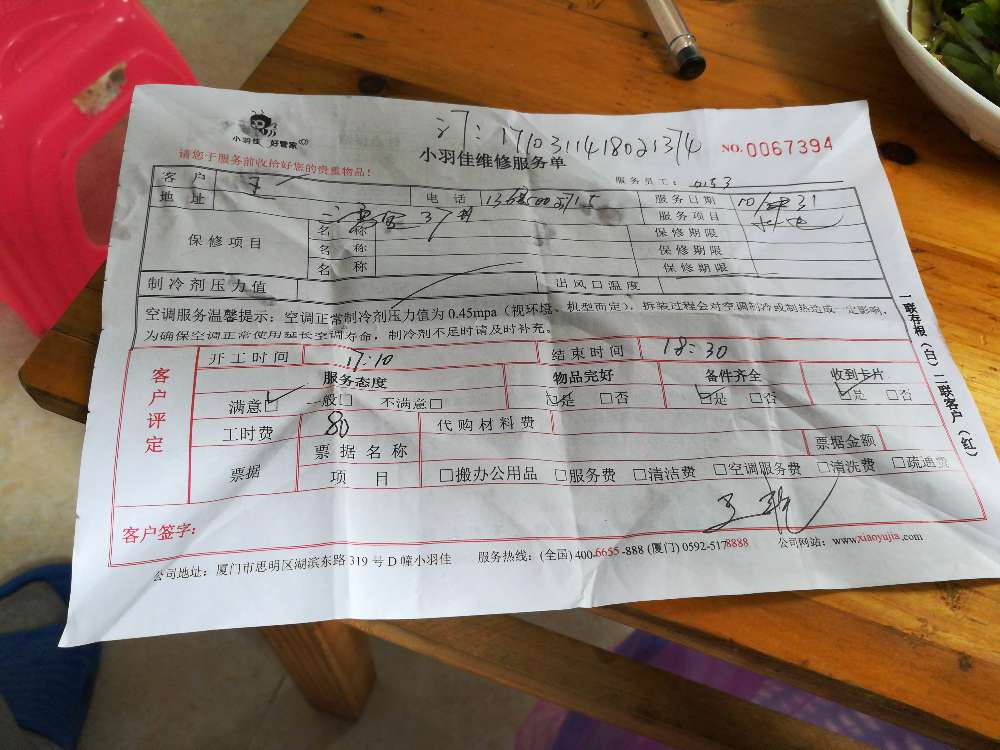 小羽佳 好管家
订:1710311418021374
小羽佳维修服务单
NO.0067394
请您于服务前收拾好您的贵重物品!
服务员工: 0153
客户 王 电话 服务日期 10 31
地址 37 服务项目
保修项目 名称 保修期限
名称 保修期限
名称 保修期限
制冷剂压力值 出风口温度
空调服务温馨提示:空调正常制冷剂压力值为0.45mpa(视环境、机型而定),拆装过程会对空调制冷或制热造成一定影响,
为确保空调正常使用延长空调寿命,制冷剂不足时请及时补充。
一联存根(白)二联客户(红)
客户评定
开工时间 17:10 结束时间 18:30
服务态度 物品完好 备件齐全 收到卡片
满意□ 一般□ 不满意□ □是 □否 □是 □否 □是 □否
工时费 80 代购材料费
票据 票据名称 票据金额
项目 □搬办公用品 □服务费 □清洁费 □空调服务费 □清洗费 □疏通费
客户签字:
公司地址:厦门市思明区湖滨东路319号D幢小羽佳 服务热线:(全国)400-6655-888 (厦门)0592-5178888 公司网站:www.xiaoyujia.com